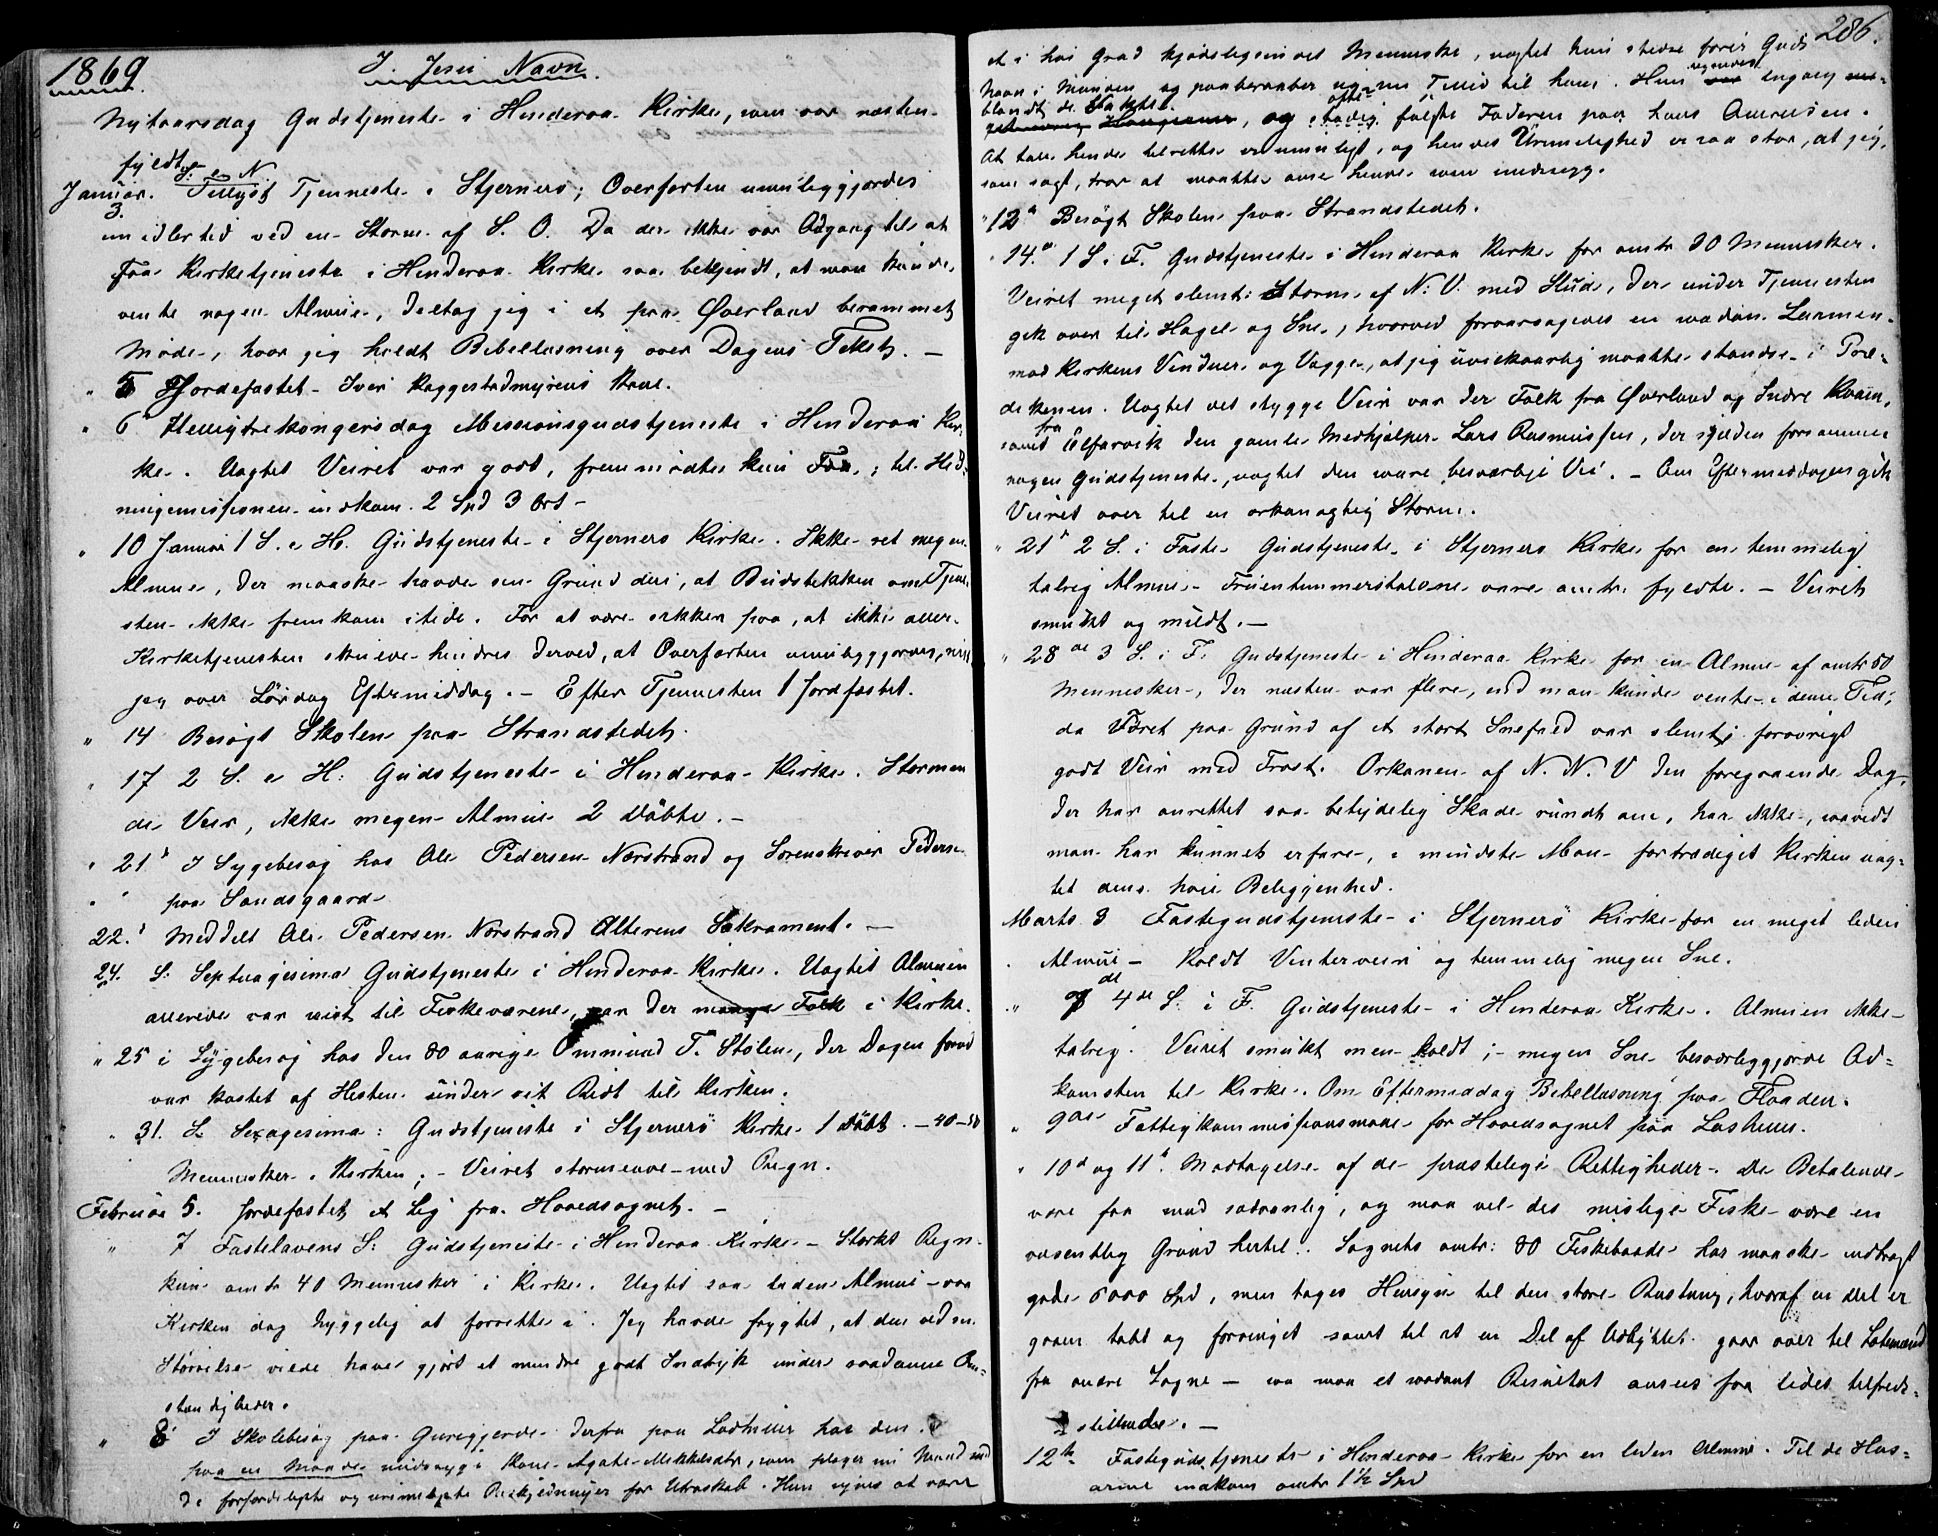 1869 I Jesu Navn.
Nytaarsdag Gudstjeneste i Hinderaa Kirke, som var næsten
fyldt.
S. e. N.
Januar 3. Tillyst Tjenneste i Stjernerø; Overfarten umuliggjordes
imidlertid ved en Storm af S. O. Da der ikke var Adgang til at
faa Kirketjeneste i Hinderaa Kirke saa bekjendt, at man kunde
vente nogen Almue, deltog jeg i et paa Øverland berammet
Møde, hvor jeg holdt Bibellæsning over Dagens Tekst. –
" 5 Jordfæstet Iver Raggestadmyrens Kone.
" 6 Helligtrekongersdag Missionsgudstjeneste i Hinderaa Kir-
ke. Uagtet Veiret var godt, fremmødte kun Faa; til Hed-
ningemissionen indkom 2 Spd 3 Ort –
" 10 Januar 1 S. e. H. Gudstjeneste i Stjernerø Kirke. Ikke ret megen
Almue, der maaske havde sin Grund deri, at Budstikken om Tjene-
sten ikke fremkom itide. For at være sikker paa, at ikke
Kirketjenesten skulde hindres derved, at Overfarten umuliggjordes,
jeg over Lørdag Eftermiddag. – Efter Tjenesten 1 Jordfæstet.
" 14 Besøgt Skolen paa Strandstedet.
" 17 2 S. e H: Gudstjeneste i Hinderaa Kirke. Stormen-
de Veir, ikke megen Almue 2 Døbte. –
" 21 I Sygebesøg hos Ole Pedersen Nærstrand og Sorenskriver Pedersen
" paa Sandsgaard
22. Meddelt Ole Pedersen Nærstrand Alterens Sakrament. –
24. S. Septuagesima Gudstjeneste i Hinderaa Kirke. Uagtet Almuen
allerede var reist til Fiskeværene, var der mange Folk i Kirke.
" 25 i Sygebesøg hos den 80 aarige Ommund T. Stølen, der Dagen forud
var kastet af Hesten under sit Ridt til Kirken.
" 31. S. Sexagesima: Gudstjeneste i Stjernerø Kirke 1 Døbt. – 40–50
Mennesker i Kirken; – Veiret stormende med Regn.
Februar 5. Jordfæstet et Lig fra Hovedsognet. –
" 7 Fastelavens S: Gudstjeneste i Hinderaa Kirke – Stærkt Regn
kun omtr 40 Mennesker i Kirke. Uagtet saa liden Almue – var
Kirken dog hyggelig at forrette i. Jeg havde frygtet, at den ved sin
Størrelse vilde have gjort et mindre godt Indtryk under saadanne Om-
stændigheder.
" 8 I Skolebesøg paa Gureggjerde derfra paa hos den
paa en Maade Kone Agate Mikkelsdtr, som plager sin Mand med
de og urimeligste Beskyldninger for Utroskab. Hun synes at være
286.
et i høi Grad kjødeligsindet Menneske, uagtet hun stedse fører Guds
Navn i Munden og paaberaaber sig sin Tillid til ham. Hun regnedes engang
blandt de Vakte, og ofte stadig fulgte Faderen paa hans
At tale hende tilrette er umuligt, og hendes Urimelighed er saa stor, at jeg,
som sagt, tror at maatte anse hende som sindssyg.
" 12 Besøgt Skolen paa Strandstedet.
" 14. 1 S. i F. Gudstjeneste i Hinderaa Kirke for omtr 30 Mennesker.
Veiret meget slemt: Storm af N: V. med Slud, der under Tjenesten
gik over til Hagel og Sne, hvorved foraarsagedes en saadan Larmen
mod Kirkens Vinduer og Vægge, at jeg uvilkaarlig maatte standse i Præ-
dikenen. Uagtet det stygge Veir var der Folk fra Øverland og Indre Kvam,
samt fra Elfarvik den gamle Medhjælper Lars Rasmussen, der sjelden forsømmer
nogen Gudstjeneste, uagtet den svære besværlige Vei. – Om Eftermiddagen gik
Veiret over til en orkanagtig Storm.
" 21 2 S. i Faste Gudstjeneste i Stjernerø Kirke for en temmelig
talrig Almue – Fruentimmerstolene vare omtr. fyldte. – Veiret
smukt og mildt. –
" 28 de 3 S. i F. Gudstjeneste i Hinderaa Kirke for en Almue af omtr 50
Mennesker, der næsten var flere, end man kunde vente i denne Tid,
da Føret paa Grund af et stort Snefald var slemt; forøvrigt
godt Veir med Frost. Orkanen af N. N. V den foregaaende Dag,
der har anrettet saa betydelig Skade rundt om, har ikke, saavidt
man har kunnet erfare, i mindste Mon fortrædiget Kirken uag-
tet dens høie Beliggenhed.
Marts 3 Fastegudstjeneste i Stjernerø Kirke for en meget liden
Almue – Koldt Vinterveir og temmelig megen Sne.
" 7 de 4 de S. i F. Gudstjeneste i Hinderaa Kirke. Almuen ikke
talrig. Veiret smukt men koldt; – megen Sne besværliggjorde Ad-
komsten til Kirke. Om Eftermiddag Bibellæsning paa Flaaden.
" 9 de Fattigkommissionsmøde for Hovedsognet paa
" 10 og 11 Modtagelse af de præstelige Rettigheder. De Betalende
vare faa mod sædvanlig, og maa vel det mislige Fiske være en
væsentlig Grund hertil. Sognets omtr: 80 Fiskebaade har maaske indbragt
gode 5000 Spd, men tages Hensyn til den store Rustning, hvoraf en Del er
gaaen tabt og forringet samt til at en Del af Udbyttet gaar over til
fra andre Sogne – saa maa et saadant Resultat ansees for lidet tilfreds-
stillende. –
12 te Fastegudstjeneste i Hinderaa Kirke for en liden Almue. Til de Hus-
arme indkom omtr 1½ Spd